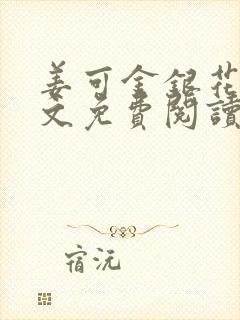 姜可金銀花
文免費閱讀
宿沅